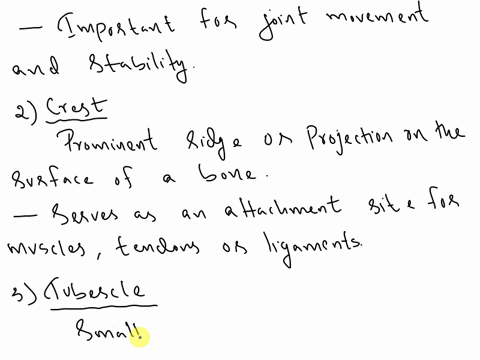 — Important for joint movement
and stability.
2) Crest
Prominent ridge or projection on the
surface of a bone.
— Serves as an attachment site for
muscles, tendons or ligaments.
3) Tubercle
Small